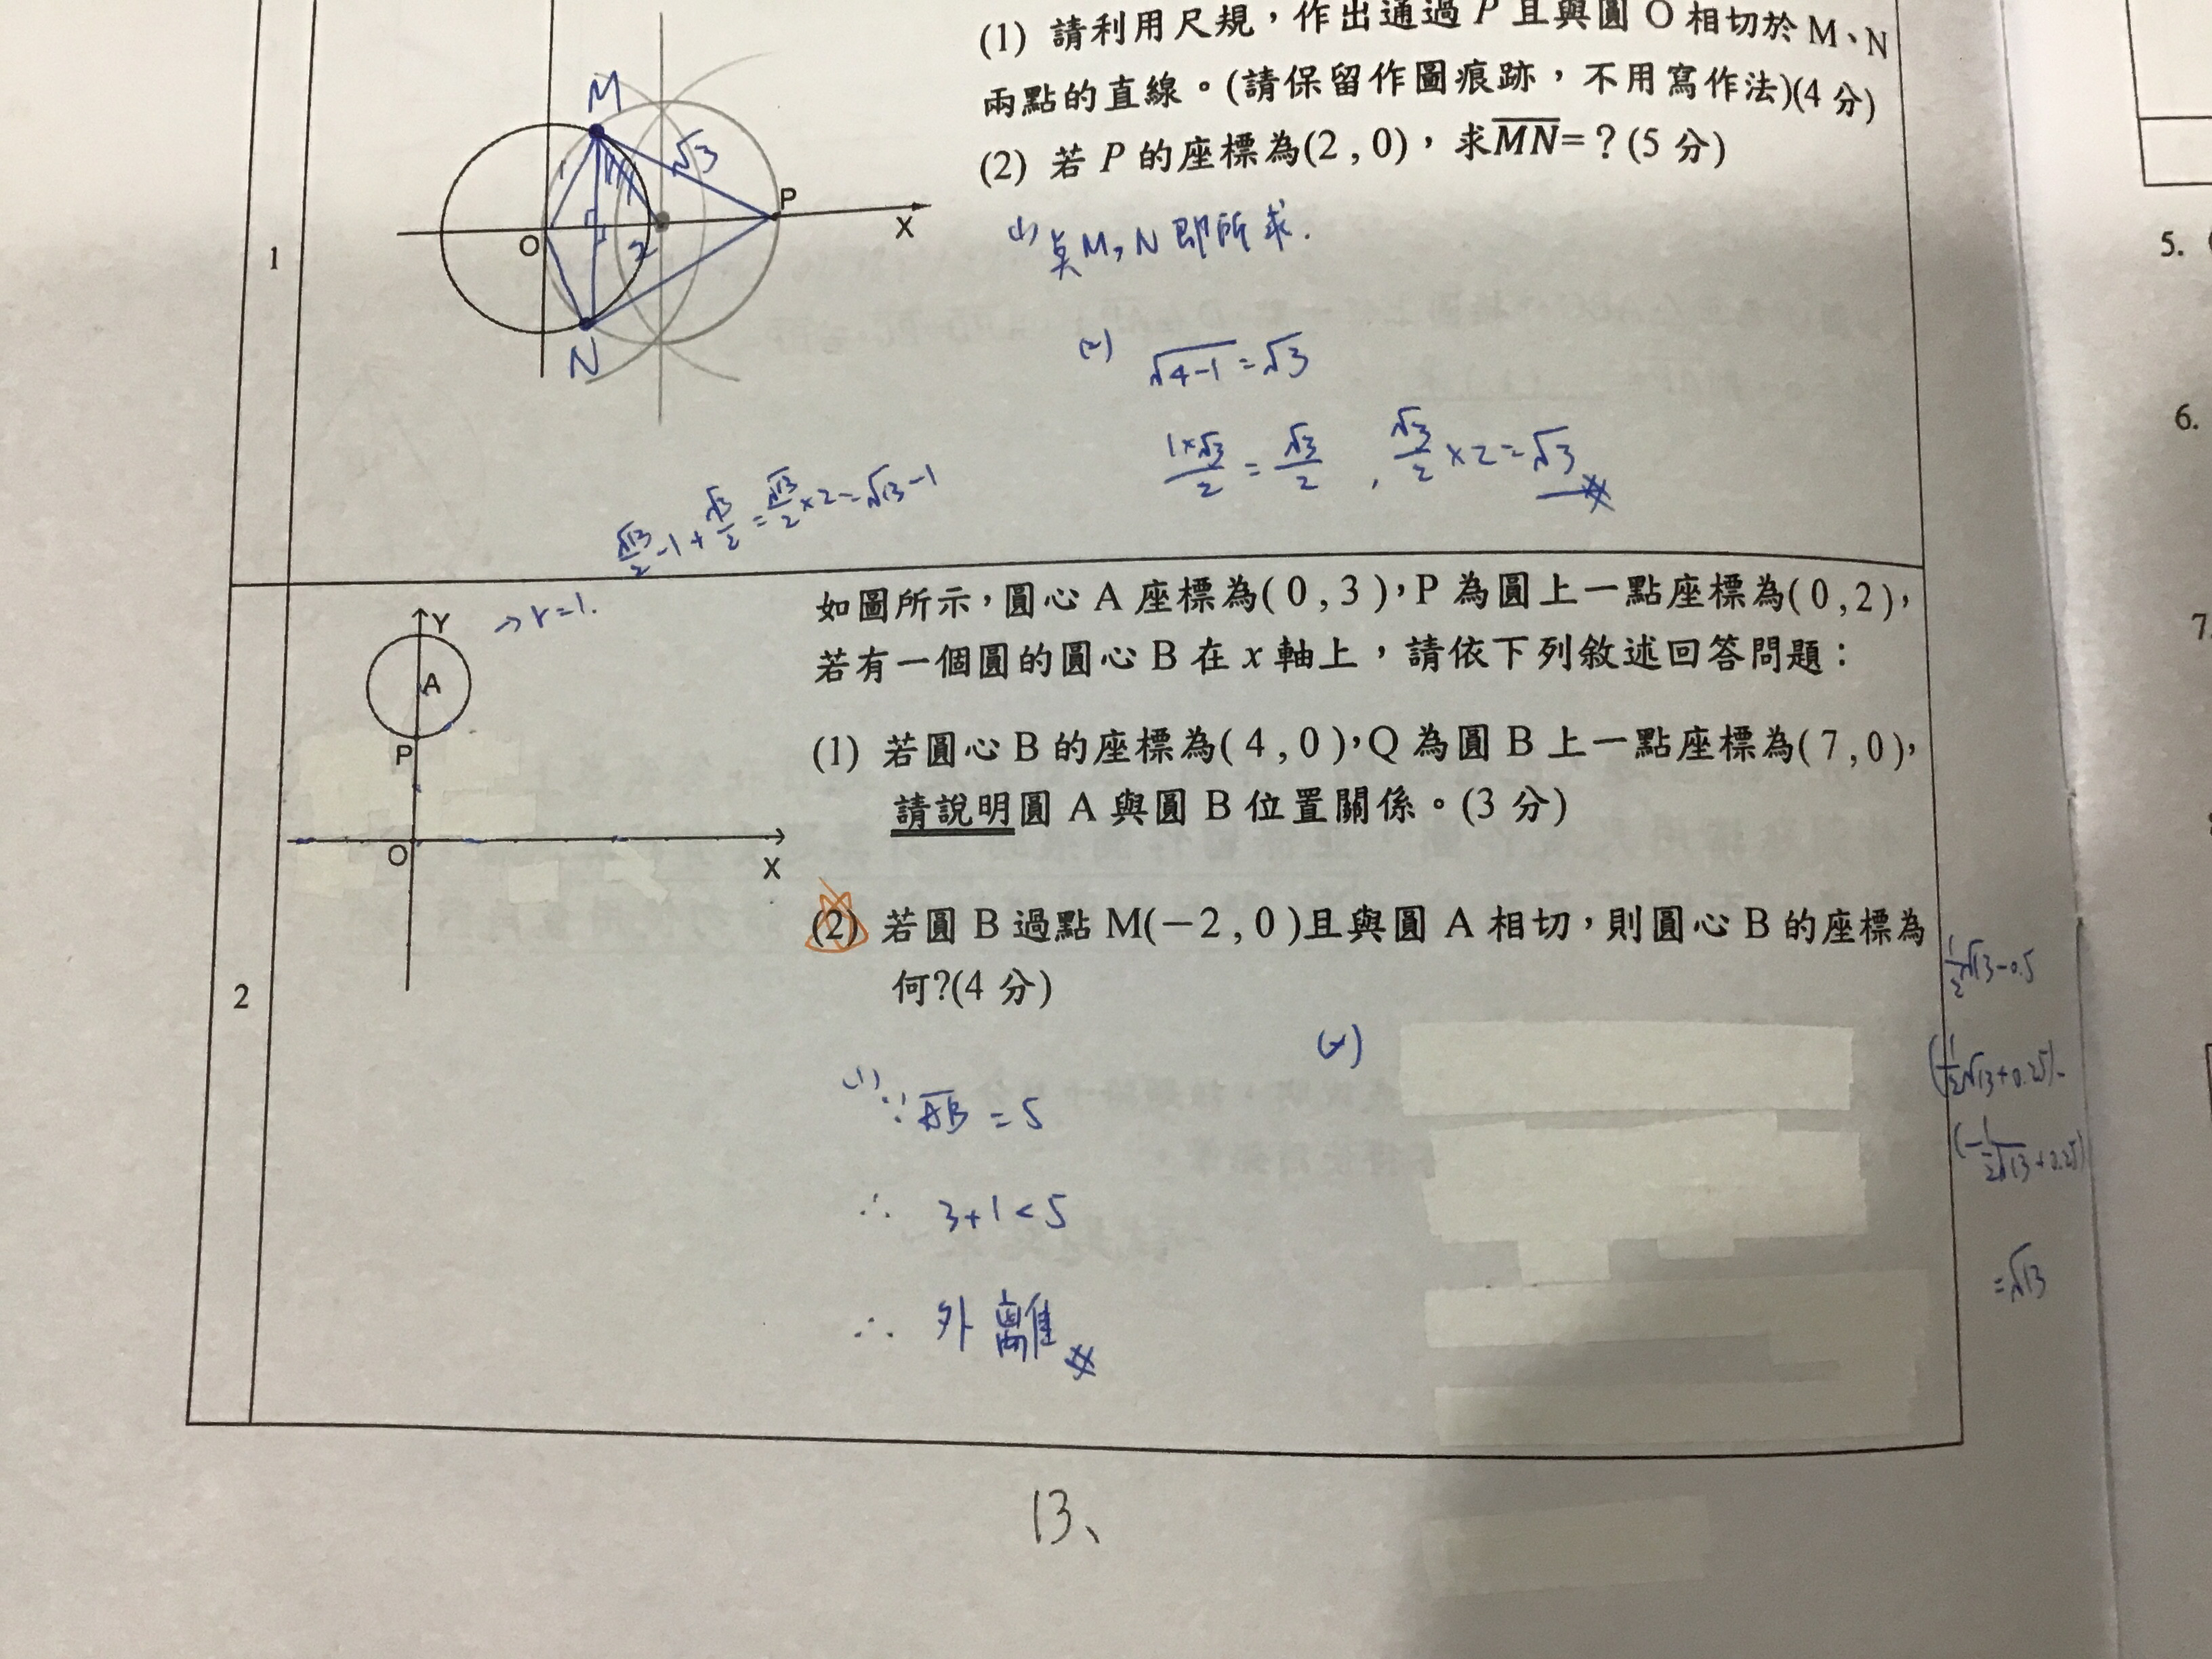 (1) 請利用尺規，作出通過 P 且與圓 O 相切於 M、N
兩點的直線。(請保留作圖痕跡，不用寫作法)(4 分)
(2) 若 P 的座標為(2 , 0)，求MN=？(5 分)
M
1
√3
P
X
O
2
N
1
(1) 點M,N 即所求.
(2) √4-1=√3
1×√3/2 = √3/2 , √3/2 ×2=√3
√13/2 -1+ √3/2 = √13/2 ×2=√13-1
→r=1.
Y
A
P
O
X
2
如圖所示，圓心 A 座標為( 0 , 3 )，P 為圓上一點座標為( 0 , 2 )，
若有一個圓的圓心 B 在 x 軸上，請依下列敘述回答問題：
(1) 若圓心 B 的座標為( 4 , 0 )，Q 為圓 B 上一點座標為( 7 , 0 )，
請說明圓 A 與圓 B 位置關係。(3 分)
(2) 若圓 B 過點 M(－2 , 0 )且與圓 A 相切，則圓心 B 的座標為
何?(4 分)
(1) ∵ AB = 5
∴ 3+1<5
∴ 外離
(2)
1/2√13-0.5
(1/2√13+0.25)-
(-1/2√13+0.25)
=√13
13、
5.
6.
7.